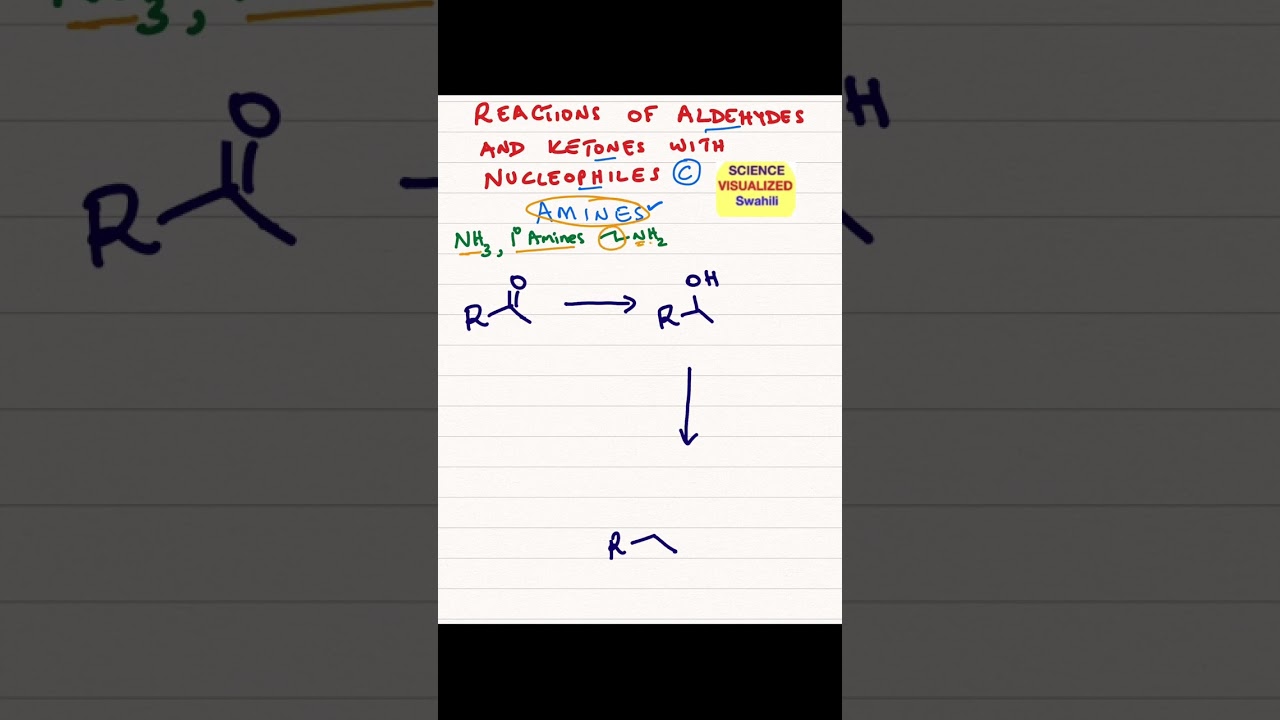 REACTIONS OF ALDEHYDES
AND KETONES WITH
NUCLEOPHILES C
SCIENCE
VISUALIZED
Swahili
AMINES
NH3, 1° Amines NH2
O
R
OH
R
R